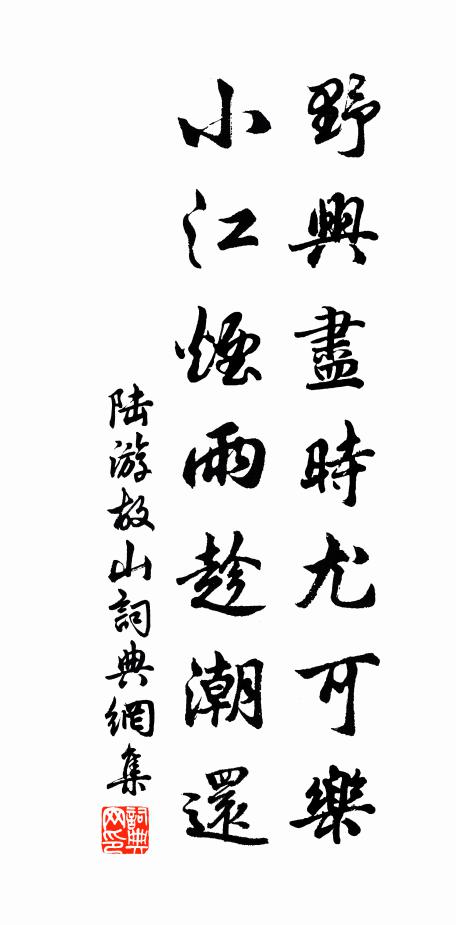 野興盡時尤可樂
小江煙雨趁潮還
陆游故山詞典網集
詞典网印